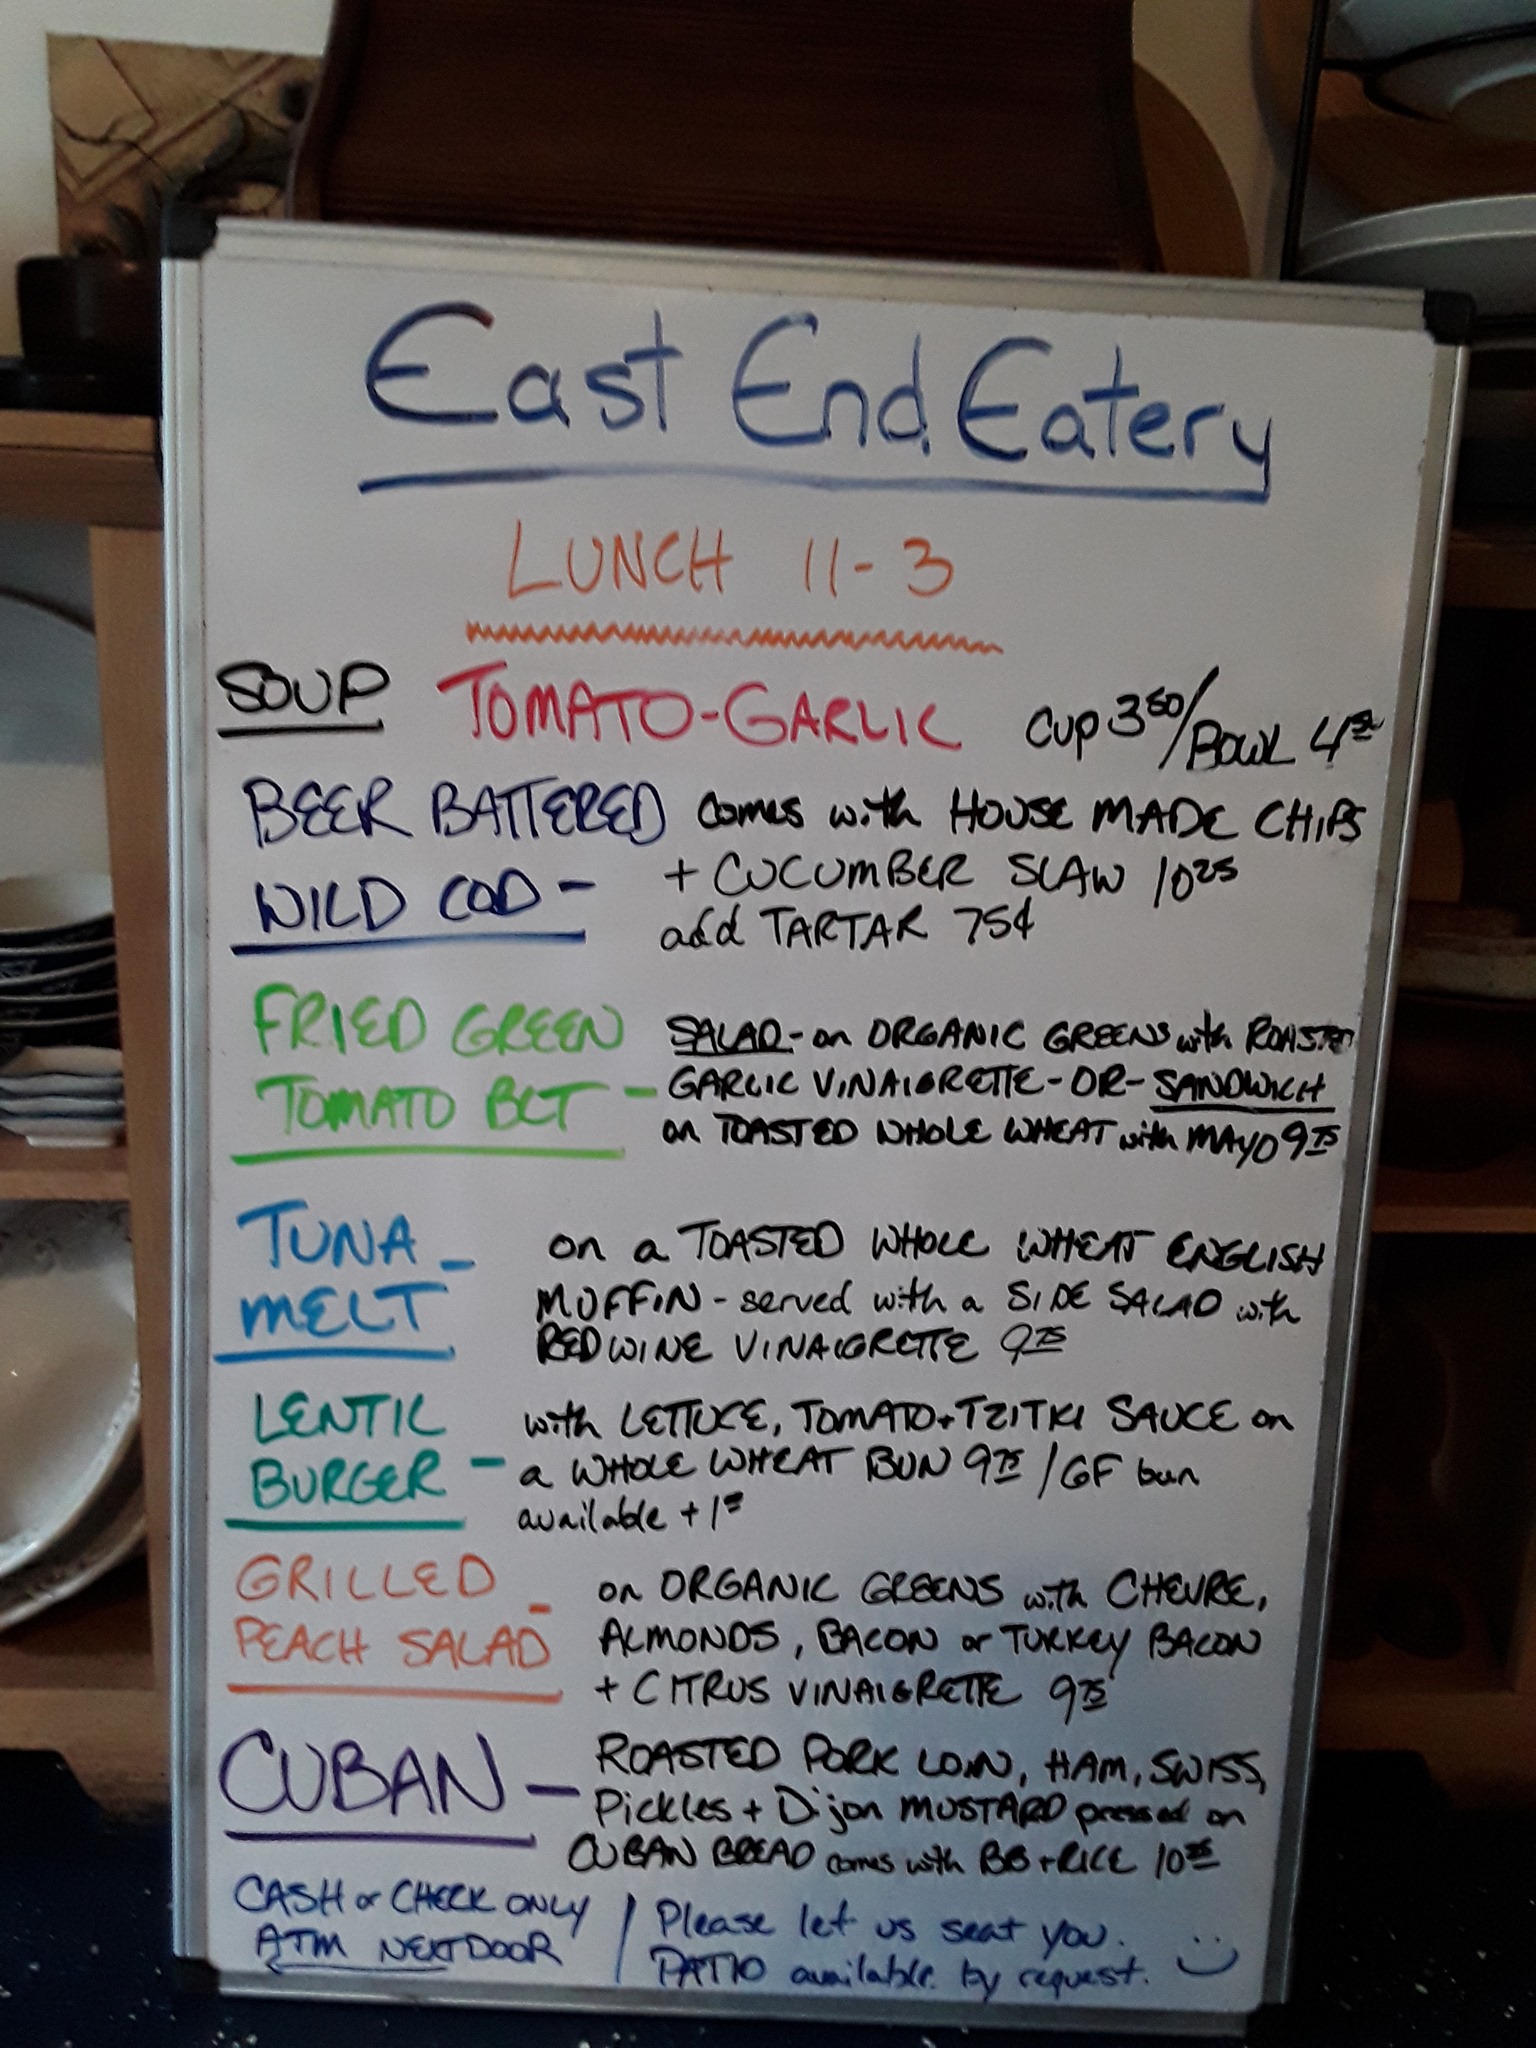 East End Eatery
LUNCH 11-3
SOUP TOMATO-GARLIC Cup 3 50/BOWL 4 50
BEER BATTERED comes with HOUSE MADE CHIPS
WILD COD - + CUCUMBER SLAW 10 25
add TARTAR 75¢
FRIED GREEN SALAD - on ORGANIC GREENS with ROASTED
TOMATO BLT - GARLIC VINAIGRETTE - OR - SANDWICH
on TOASTED WHOLE WHEAT with MAYO 9 75
TUNA - on a TOASTED WHOLE WHEAT ENGLISH
MELT MUFFIN - served with a SIDE SALAD with
RED WINE VINAIGRETTE 9 75
LENTIL with LETTUCE, TOMATO + TZITKI SAUCE on
BURGER - a WHOLE WHEAT BUN 9 75 / GF bun
available + 1
GRILLED - on ORGANIC GREENS with CHEVRE,
PEACH SALAD ALMONDS, BACON or TURKEY BACON
+ CITRUS VINAIGRETTE 9 75
CUBAN - ROASTED PORK LOIN, HAM, SWISS,
Pickles + Dijon MUSTARD pressed on
CUBAN BREAD comes with BB + RICE 10
CASH or CHECK ONLY / Please let us seat you.
ATM NEXT DOOR PATIO available by request.